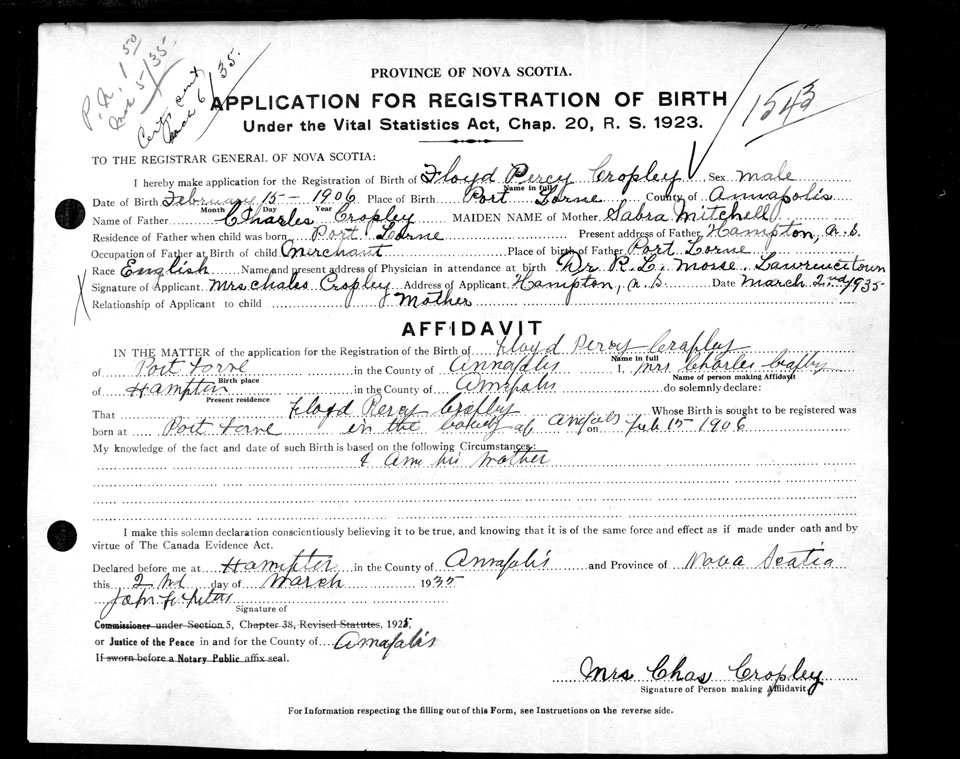 P.N. 1.50
Mch 5/35.
Cert. sent
March 6/35.
PROVINCE OF NOVA SCOTIA.
APPLICATION FOR REGISTRATION OF BIRTH
Under the Vital Statistics Act, Chap. 20, R. S. 1923.
1543
TO THE REGISTRAR GENERAL OF NOVA SCOTIA:
I hereby make application for the Registration of Birth of Floyd Percy Cropley Sex male
Name in full
Date of Birth February 15 - 1906 Place of Birth Port Lorne County of Annapolis
Month Day Year
Name of Father Charles Cropley MAIDEN NAME of Mother Sabra Mitchell
Residence of Father when child was born Port Lorne Present address of Father Hampton, N.S.
Occupation of Father at Birth of child Merchant Place of birth of Father Port Lorne
Race English Name and present address of Physician in attendance at birth Dr R. L. Morse Lawrencetown
X Signature of Applicant Mrs Chales Cropley Address of Applicant Hampton, N.S. Date March 2nd 1935
Relationship of Applicant to child Mother
AFFIDAVIT
IN THE MATTER of the application for the Registration of the Birth of Floyd Percy Cropley
Name in full
of Port Lorne in the County of Annapolis I, Mrs Charles Cropley
Birth place Name of person making Affidavit
of Hampton in the County of Annapolis do solemnly declare:
Present residence
That Floyd Percy Cropley Whose Birth is sought to be registered was
born at Port Lorne in the County of Annapolis on Feb 15 1906
My knowledge of the fact and date of such Birth is based on the following Circumstances:
I am his mother
I make this solemn declaration conscientiously believing it to be true, and knowing that it is of the same force and effect as if made under oath and by
virtue of The Canada Evidence Act.
Declared before me at Hampton in the County of Annapolis and Province of Nova Scotia
this 2nd day of March 1935
John
Signature of
Commissioner under Section 5, Chapter 38, Revised Statutes, 1923.
or Justice of the Peace in and for the County of Annapolis
If sworn before a Notary Public affix seal.
Mrs Chas Cropley
Signature of Person making Affidavit
For Information respecting the filling out of this Form, see Instructions on the reverse side.